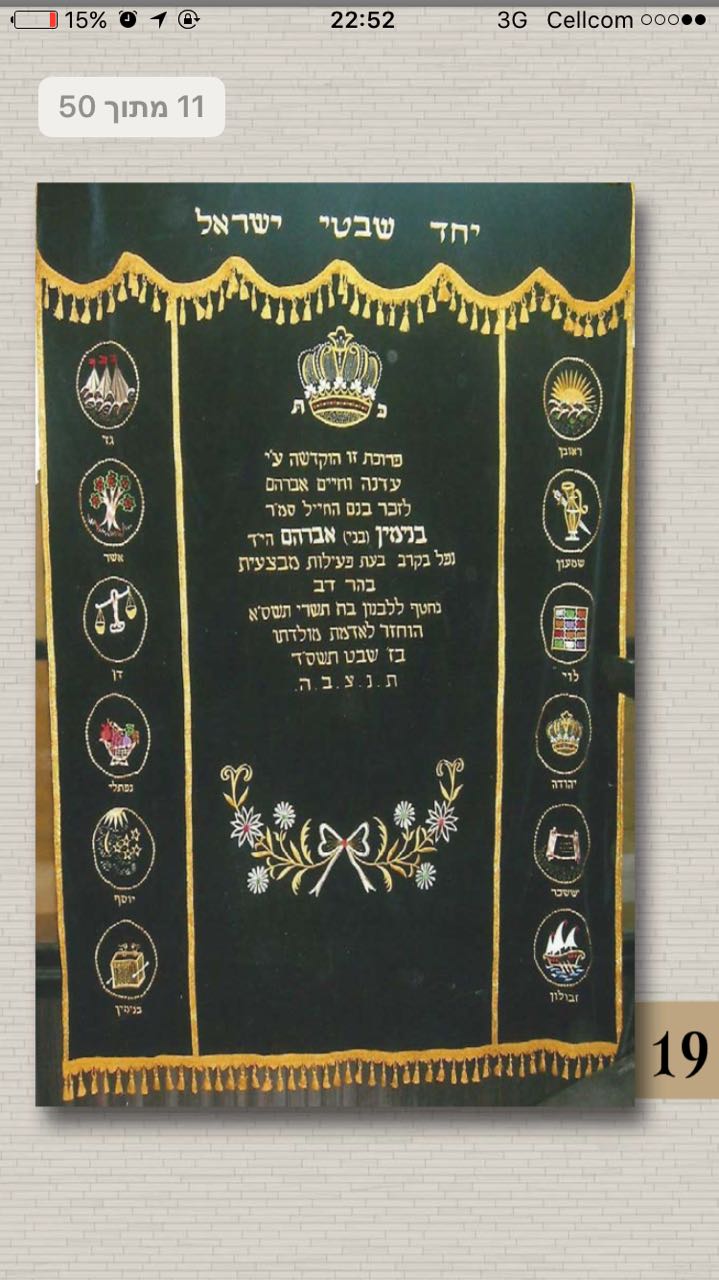 15% 22:52 3G Cellcom
11 מתוך 50
יחד שבטי ישראל
כ ת
פרוכת זו הוקדשה ע״י
עדנה וחיים אברהם
לזכר בנם החייל סמ״ר
בנימין (בני) אברהם הי״ד
נפל בקרב בעת פעילות מבצעית
בהר דב
נחטף ללבנון בח׳ תשרי תשס״א
הוחזר לאדמת מולדתו
בז׳ שבט תשס״ד
ת.נ.צ.ב.ה.
ראובן
שמעון
לוי
יהודה
יששכר
זבולון
גד
אשר
דן
נפתלי
יוסף
בנימין
19